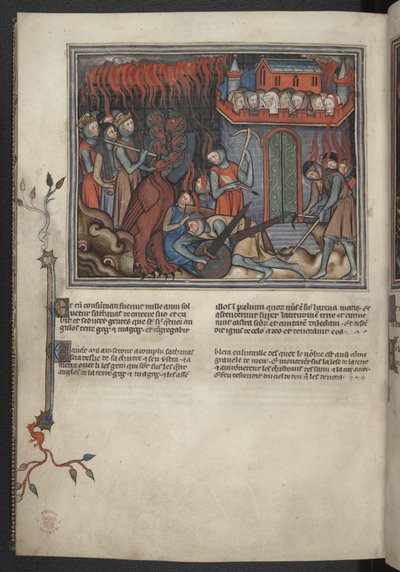 Et cū consumati fuerint mille anni sol
uetur sathanas de carcere suo et exi
bit et seducet gentes que sūt sr̄ qtuor an
gulos terre gog et magog et cgregabit
illos ī prelium quor̄ nūs ē sic harena maris et
ascenderunt super latitudinē terre et circuie
runt castra scōr et ciuitatē dilectam et descē
dit ignis de celo a deo et deuorauit eos
mil anz serunt acompliz sathanas
sera deslie de sa chartre e sen ystra e a
menra ouec li les genz qui sont sus les qtre
angles de la terre gog e magog e les asse
blera en bataille des quex le nōbre est ausi cōme
grauele de mer E monterent sus la lese de la terre
e auironerent les chasteaus des sainz e la cite amee
E feu descendi du ciel de deu les deuora